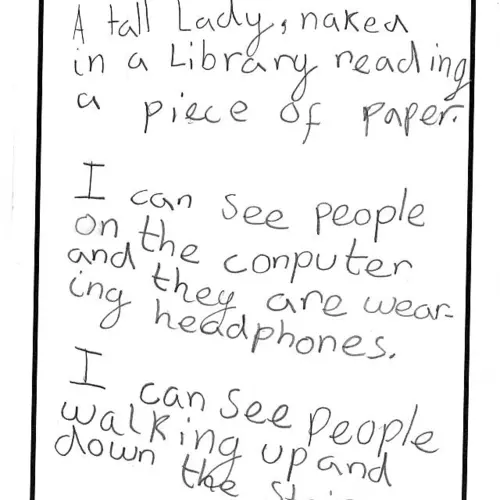 A tall Lady, naked
in a Library reading
a piece of paper.
I can see people
on the conputer
and they are wear-
ing headphones.
I can see people
walking up and
down the